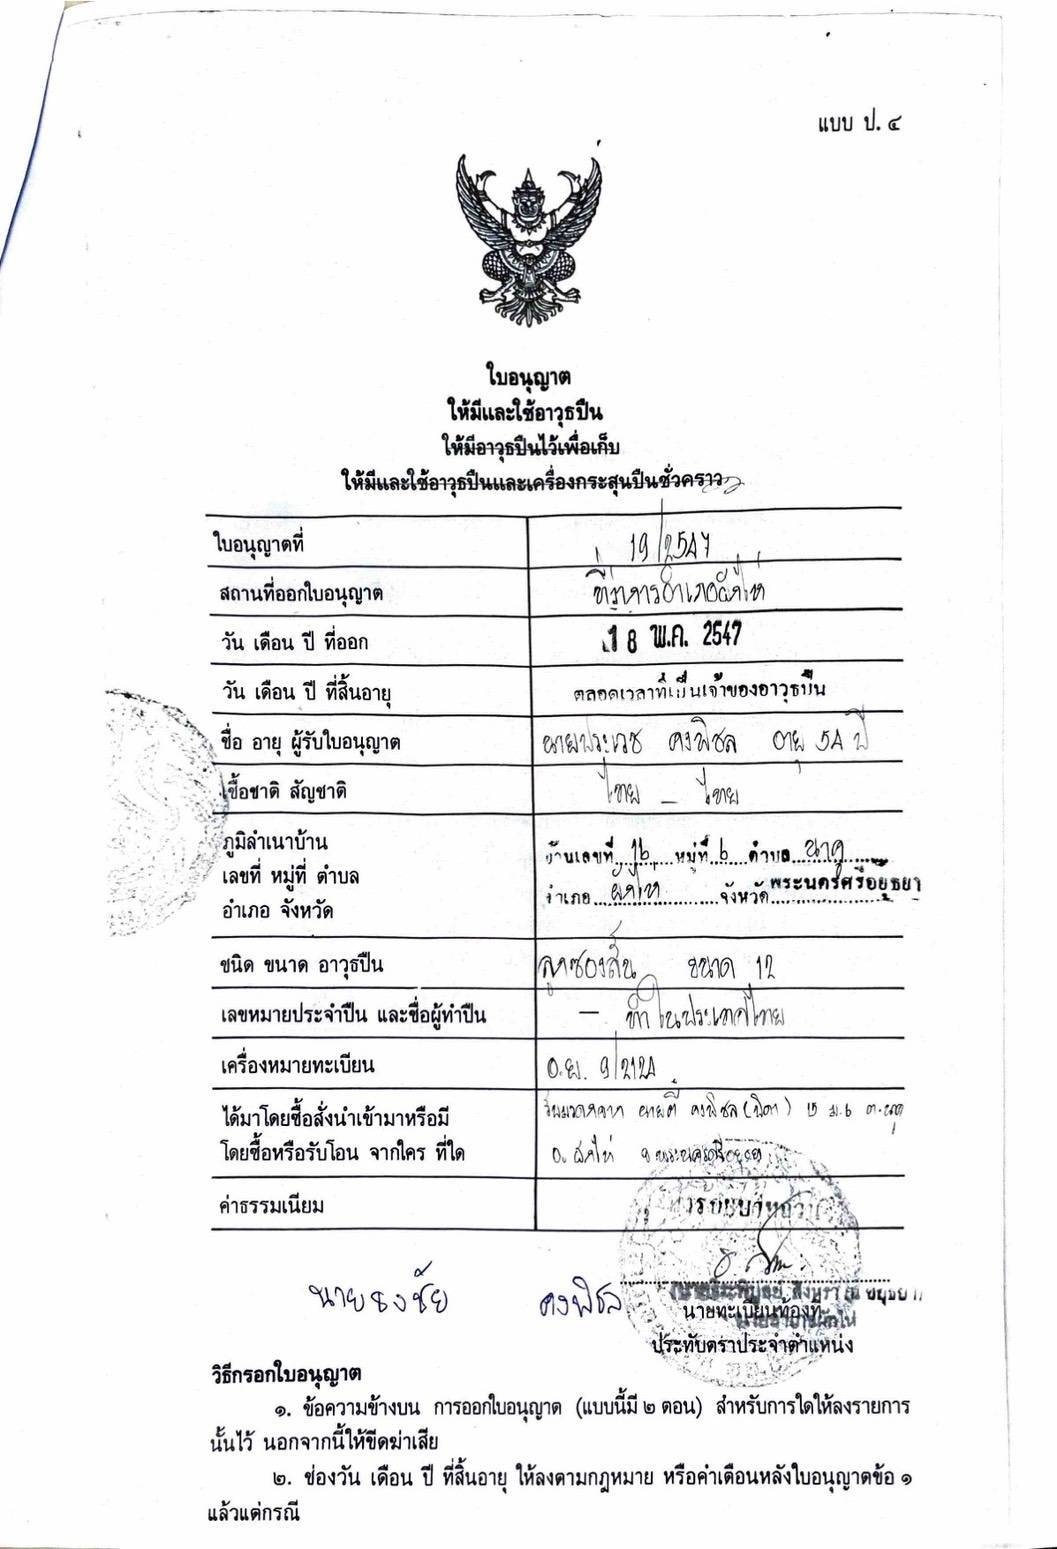 แบบ ป. ๔
ใบอนุญาต
ให้มีและใช้อาวุธปืน
ให้มีอาวุธปืนไว้เพื่อเก็บ
ให้มีและใช้อาวุธปืนและเครื่องกระสุนปืนชั่วคราว
ใบอนุญาตที่ 19/2547
สถานที่ออกใบอนุญาต ที่ว่าการอำเภอผักไห่
วัน เดือน ปี ที่ออก 18 พ.ค. 2547
วัน เดือน ปี ที่สิ้นอายุ ตลอดเวลาที่เป็นเจ้าของอาวุธปืน
ชื่อ อายุ ผู้รับใบอนุญาต นายประเวช คงพิชล อายุ 54 ปี
เชื้อชาติ สัญชาติ ไทย - ไทย
ภูมิลำเนาบ้าน
เลขที่ หมู่ที่ ตำบล บ้านเลขที่ 16 หมู่ที่ 6 ตำบล นาคู
อำเภอ จังหวัด อำเภอ ผักไห่ จังหวัด พระนครศรีอยุธยา
ชนิด ขนาด อาวุธปืน ลูกซองสั้น ขนาด 12
เลขหมายประจำปืน และชื่อผู้ทำปืน - ทำในประเทศไทย
เครื่องหมายทะเบียน อ.ย. 9/2124
ได้มาโดยซื้อสั่งนำเข้ามาหรือมี รับมรดกจาก นายตี๋ คงพิชล (บิดา) 15 ม.6 ต.นาคู
โดยซื้อหรือรับโอน จากใคร ที่ใด อ. ผักไห่ จ. พระนครศรีอยุธยา
ค่าธรรมเนียม
นายธงชัย คงพิชล
นายทะเบียนท้องที่
ประทับตราประจำตำแหน่ง
วิธีกรอกใบอนุญาต
๑. ข้อความข้างบน การออกใบอนุญาต (แบบนี้มี ๒ ตอน) สำหรับการใดให้ลงรายการ
นั้นไว้ นอกจากนี้ให้ขีดฆ่าเสีย
๒. ช่องวัน เดือน ปี ที่สิ้นอายุ ให้ลงตามกฎหมาย หรือคำเตือนหลังใบอนุญาตข้อ ๑
แล้วแต่กรณี